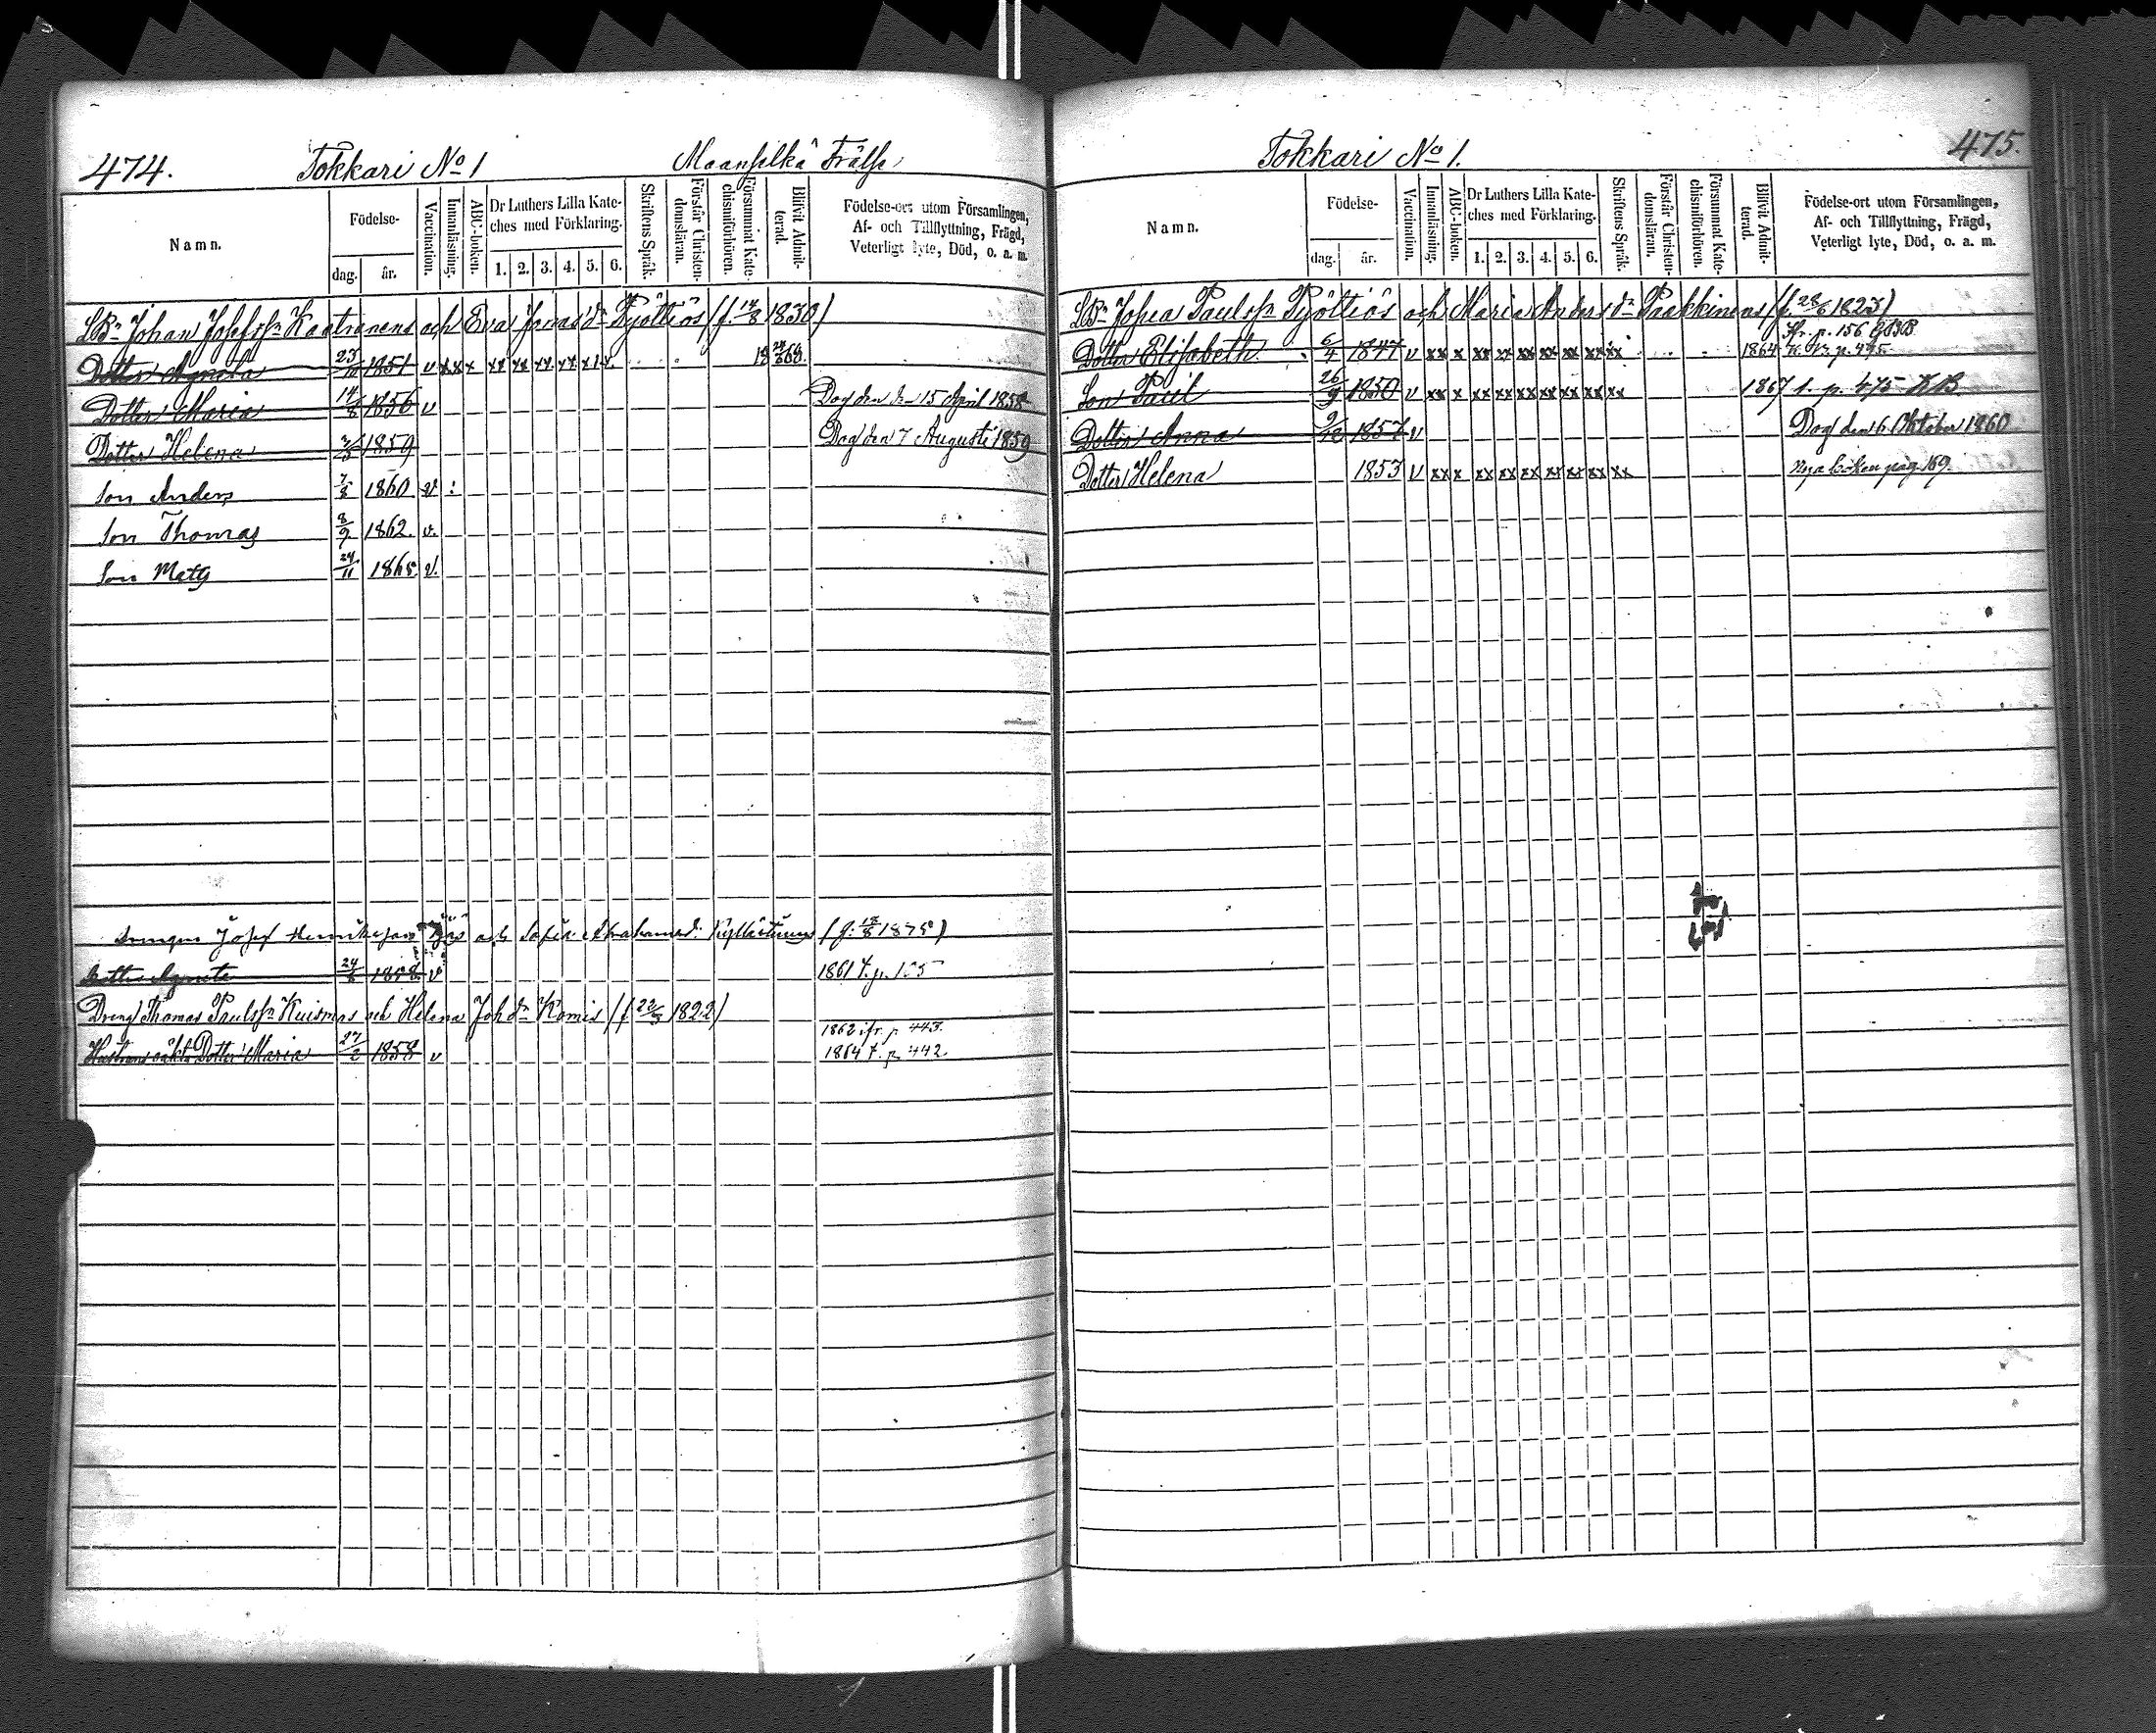 474. Tokkari No 1 Maanselkä Frälse
Namn. Födelse- dag. år. Vaccination. Innanläsning. ABC-boken. Dr Luthers Lilla Kate-ches med Förklaring. 1. 2. 3. 4. 5. 6. Skriftens Språk. Förstår Christen-domsläran. Försummat Kate-chismiförhören. Blifvit Admit-terad. Födelse-ort utom Församlingen, Af- och Tillflyttning, Frägd, Veterligt lyte, Död, o. a. m.
LBr Johan Josefsn Kaatranens och Eva Jonas dr Pyöttiös (f. 14/8 1830)
Dotter Agneta 23/10 1851 v xx x xx xx xx xx x
Dotter Maria 14/8 1856 v Dog den 15 April 1858
Dotter Helena 1859 Dog den 7 Augusti 1859
Son Anders 7/8 1860 v
Son Thomas 8/9 1862. v.
Son Mats 24/11 1865 v.
Drengen Josef Henriksson och Sofia Abrahamsd.
Dotter Agneta 24/6 1858 v 1861 t. p. 105
Dreng Thomas Paulsn Kuismas och Helena Joh dr Komis (f. 22/3 1822)
1862 ifr. p 443.
Hustruns oäkta Dotter Maria 27/2 1858 v 1864 t. p. 442.
Tokkari No 1. 475.
Namn. Födelse- dag. år. Vaccination. Innanläsning. ABC-boken. Dr Luthers Lilla Kate-ches med Förklaring. 1. 2. 3. 4. 5. 6. Skriftens Språk. Förstår Christen-domsläran. Försummat Kate-chismiförhören. Blifvit Admit-terad. Födelse-ort utom Församlingen, Af- och Tillflyttning, Frägd, Veterligt lyte, Död, o. a. m.
LBr Paulsn Pyöttiös och Maria Anders dr Paakkinens (f. 28/6 1823)
p. 156
Dotter Elisabeth 6/4 1847 v xx x xx xx xx xx xx xx xx 1864 p. 475
Son Paul 26/9 1850 v xx x xx xx xx xx xx xx xx 1867 t. p. 475 KB.
Dotter Anna 9/12 1857 v Dog den 6 Oktober 1860
Dotter Helena 1853 v xx x xx xx xx xx xx xx xx Nya boken pag. 169.